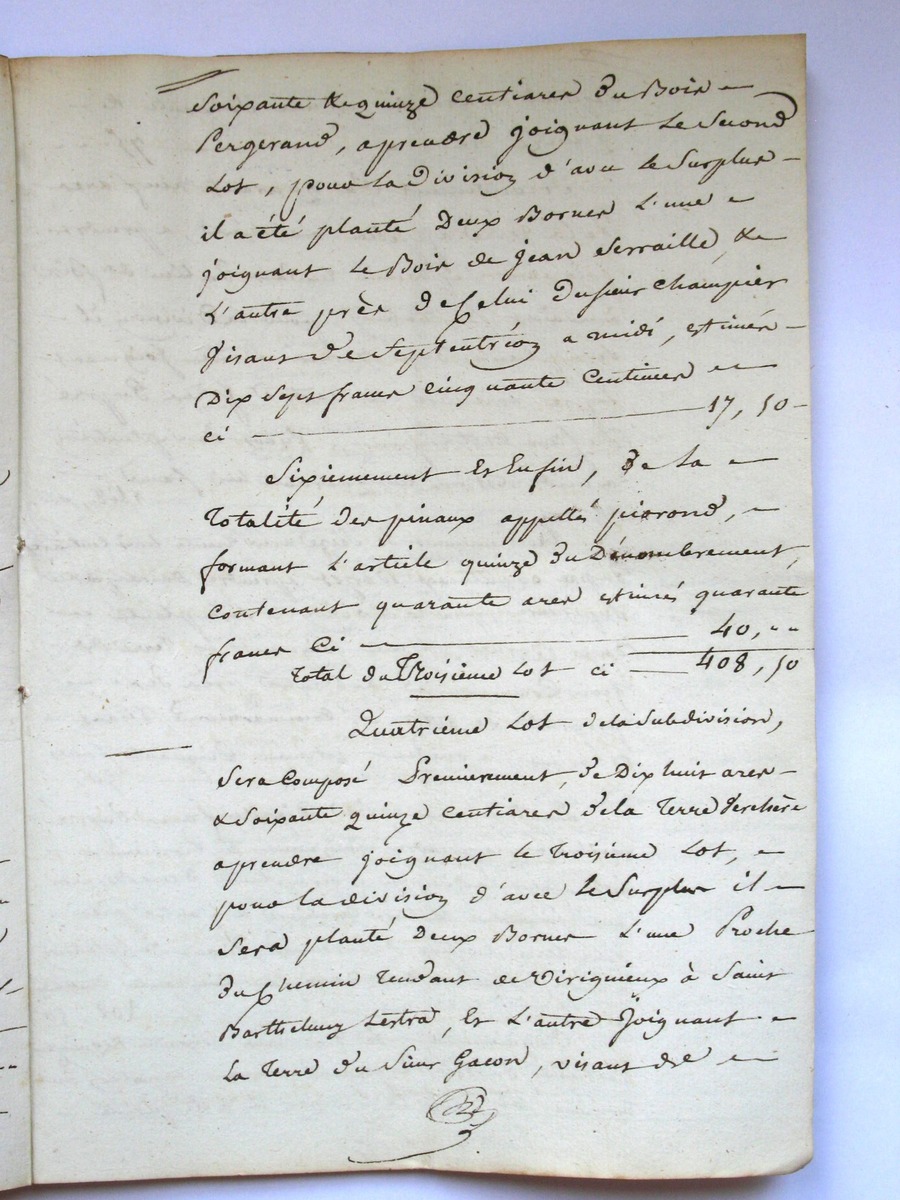 Soixante & quinze centiares du Bois
Pergerand, a prendre joignant le second
Lot, pour la Division d'avec le Surplus
il a été planté Deux Bornes L'une
joignant le Bois de Jean Serraille, &
L'autre près de Celui du sieur Champier
Visans de Septentrion a midi, estimés
Dix Sept francs cinquante Centimes
ci 17, 50
Sixiemement Et Enfin, de la
Totalité des pinaux appellés piorond,
formant L'article quinze du Dénombrement,
Contenant quarante ares estimés quarante
francs Ci 40, "
Total du Troisieme Lot ci 408, 50
Quatrième Lot de la Subdivision,
Sera Composé Premierement, de Dix huit ares
& Soixante quinze Centiares de la Terre
a prendre joignant le Troisieme Lot,
pour la division d'avec le Surplus il
Sera planté Deux Bornes L'une Proche
du Chemin Tendant de Virignieux à Saint
Barthelemy Lestra, Et L'autre Joignant
La Terre du Sieur Gacon, visans de